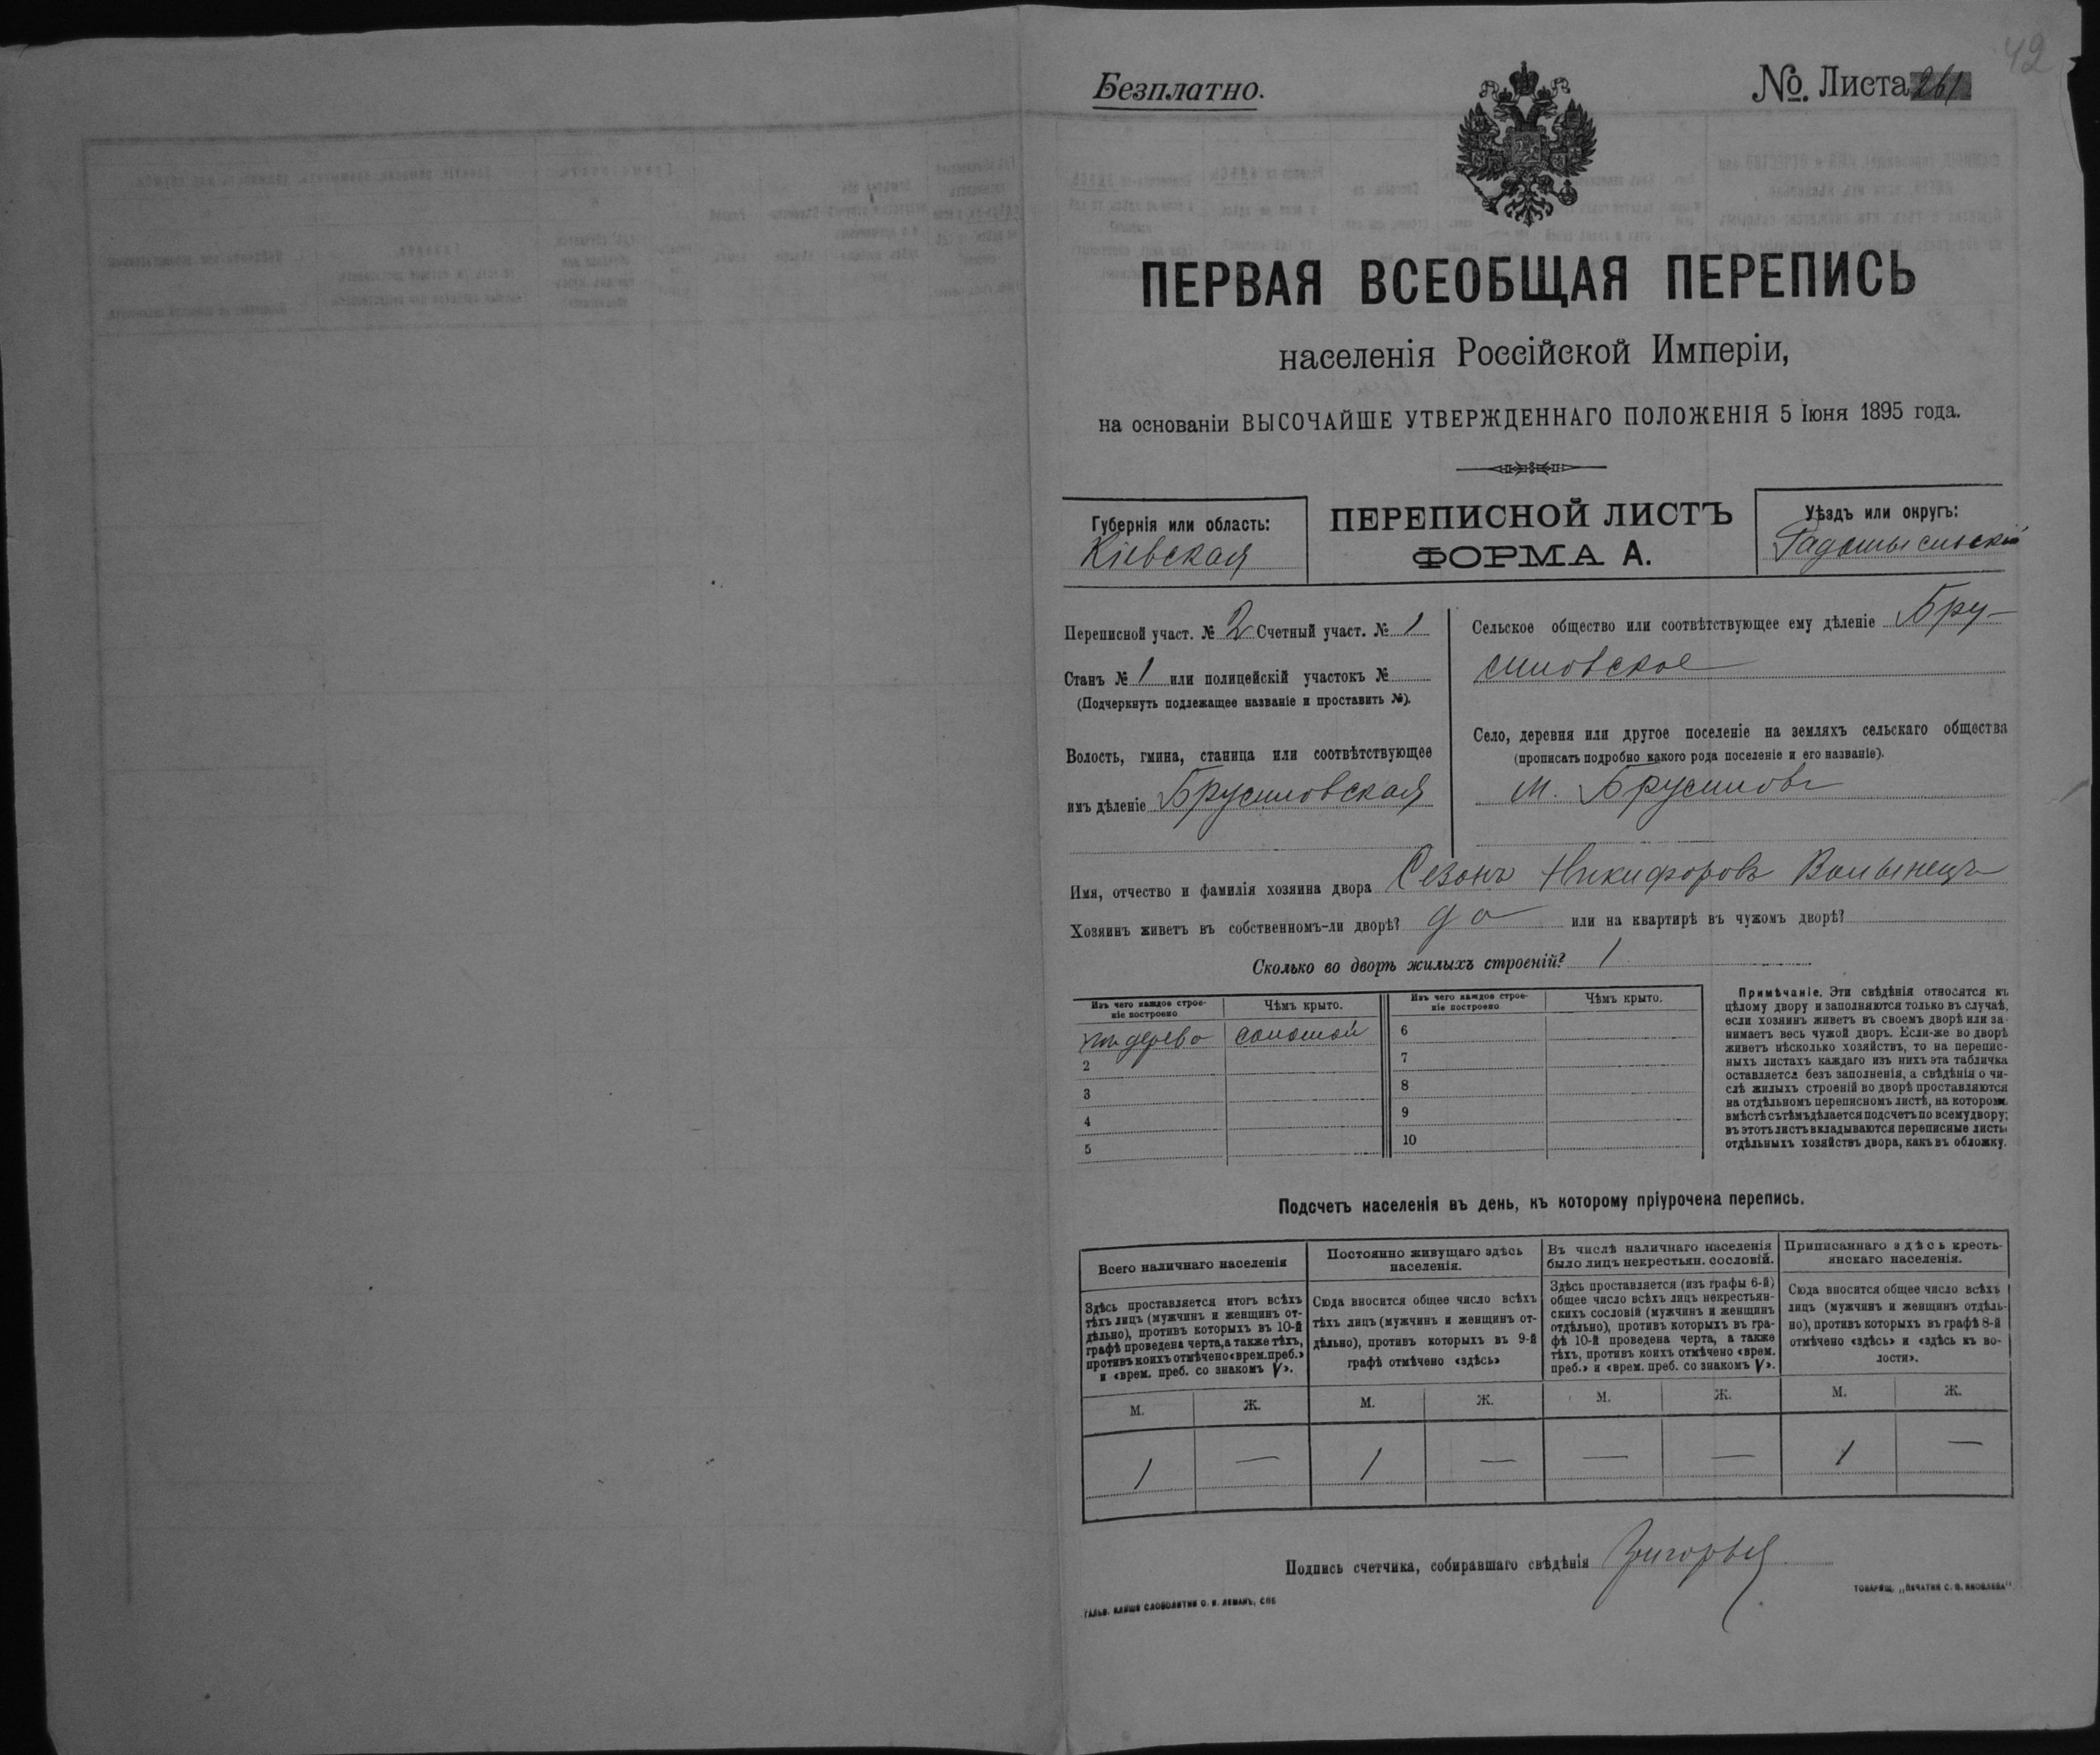 42
Безплатно.
№. Листа 261
ПЕРВАЯ ВСЕОБЩАЯ ПЕРЕПИСЬ
населенія Россійской Имперіи,
на основаніи ВЫСОЧАЙШЕ УТВЕРЖДЕННАГО ПОЛОЖЕНІЯ 5 Іюня 1895 года.
Губернія или область:
Кіевская
ПЕРЕПИСНОЙ ЛИСТЪ
ФОРМА А.
Уѣздъ или округъ:
Радомысльскій
Переписной участ. № 2 Счетный участ. № 1
Станъ № 1 или полицейскій участокъ №
(Подчеркнуть подлежащее названіе и проставить №).
Волость, гмина, станица или соотвѣтствующее
имъ дѣленіе Брусиловская
Сельское общество или соотвѣтствующее ему дѣленіе Бру-
силовское
Село, деревня или другое поселеніе на земляхъ сельскаго общества
(прописать подробно какого рода поселеніе и его названіе).
м. Брусиловъ
Имя, отчество и фамилія хозяина двора Сезонъ Никифоровъ Волынецъ
Хозяинъ живетъ въ собственномъ-ли дворѣ? да или на квартирѣ въ чужомъ дворѣ?
Сколько во дворѣ жилыхъ строеній? 1
Изъ чего каждое строе-
ніе построено
Чѣмъ крыто.
дерева соломой
2
3
4
5
Изъ чего каждое строе-
ніе построено
Чѣмъ крыто.
6
7
8
9
10
Примѣчаніе. Эти свѣдѣнія относятся къ
цѣлому двору и заполняются только въ случаѣ,
если хозяинъ живетъ въ своемъ дворѣ или за-
нимаетъ весь чужой дворъ. Если-же во дворѣ
живетъ нѣсколько хозяйствъ, то на перепис-
ныхъ листахъ каждаго изъ нихъ эта табличка
оставляется безъ заполненія, а свѣдѣнія о чи-
слѣ жилыхъ строеній во дворѣ проставляются
на отдѣльномъ переписномъ листѣ, на которомъ
вмѣстѣ съ тѣмъ дѣлается подсчетъ по всему двору;
въ этотъ листъ вкладываются переписные листы
отдѣльныхъ хозяйствъ двора, какъ въ обложку.
Подсчетъ населенія въ день, къ которому пріурочена перепись.
Всего наличнаго населенія
Здѣсь проставляется итогъ всѣхъ
тѣхъ лицъ (мужчинъ и женщинъ от-
дѣльно), противъ которыхъ въ 10-й
графѣ проведена черта, а также тѣхъ,
противъ коихъ отмѣчено «врем. преб.»
и «врем. преб. со знакомъ V».
Постоянно живущаго здѣсь
населенія.
Сюда вносится общее число всѣхъ
тѣхъ лицъ (мужчинъ и женщинъ от-
дѣльно), противъ которыхъ въ 9-й
графѣ отмѣчено «здѣсь»
Въ числѣ наличнаго населенія
было лицъ некрестьян. сословій.
Здѣсь проставляется (изъ графы 6-й)
общее число всѣхъ лицъ некрестьян-
скихъ сословій (мужчинъ и женщинъ
отдѣльно), противъ которыхъ въ гра-
фѣ 10-й проведена черта, а также
тѣхъ, противъ коихъ отмѣчено «врем.
преб.» и «врем. преб. со знакомъ V».
Приписаннаго здѣсь кресть-
янскаго населенія.
Сюда вносится общее число всѣхъ
лицъ (мужчинъ и женщинъ отдѣль-
но), противъ которыхъ въ графѣ 8-й
отмѣчено «здѣсь» и «здѣсь къ во-
лости».
М. Ж. М. Ж. М. Ж. М. Ж.
1 — 1 — — — 1 —
Подпись счетчика, собиравшаго свѣдѣнія
ГАЛЬВ. КЛИШЕ СЛОВОЛИТНИ О. И. ЛЕМАНЪ, СПБ
ТОВАРИЩ. „ПЕЧАТНЯ С. П. ЯКОВЛЕВА“